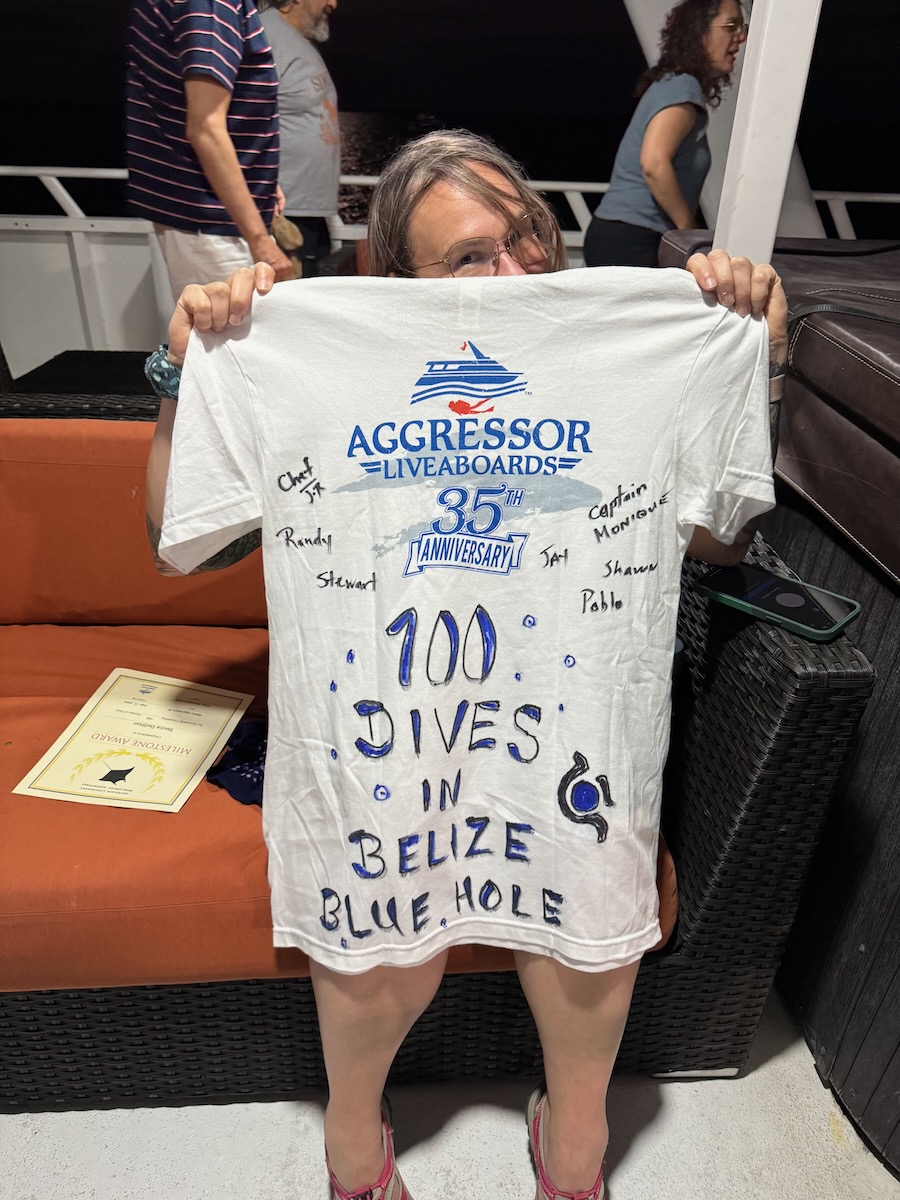 AGGRESSOR
LIVEABOARDS
35TH
ANNIVERSARY
Chef
J.R
Randy
Stewart
Captain
MONIQUE
JAY
Shawn
Pablo
100
DIVES
IN
BELIZE
BLUE HOLE
MILESTONE AWARD